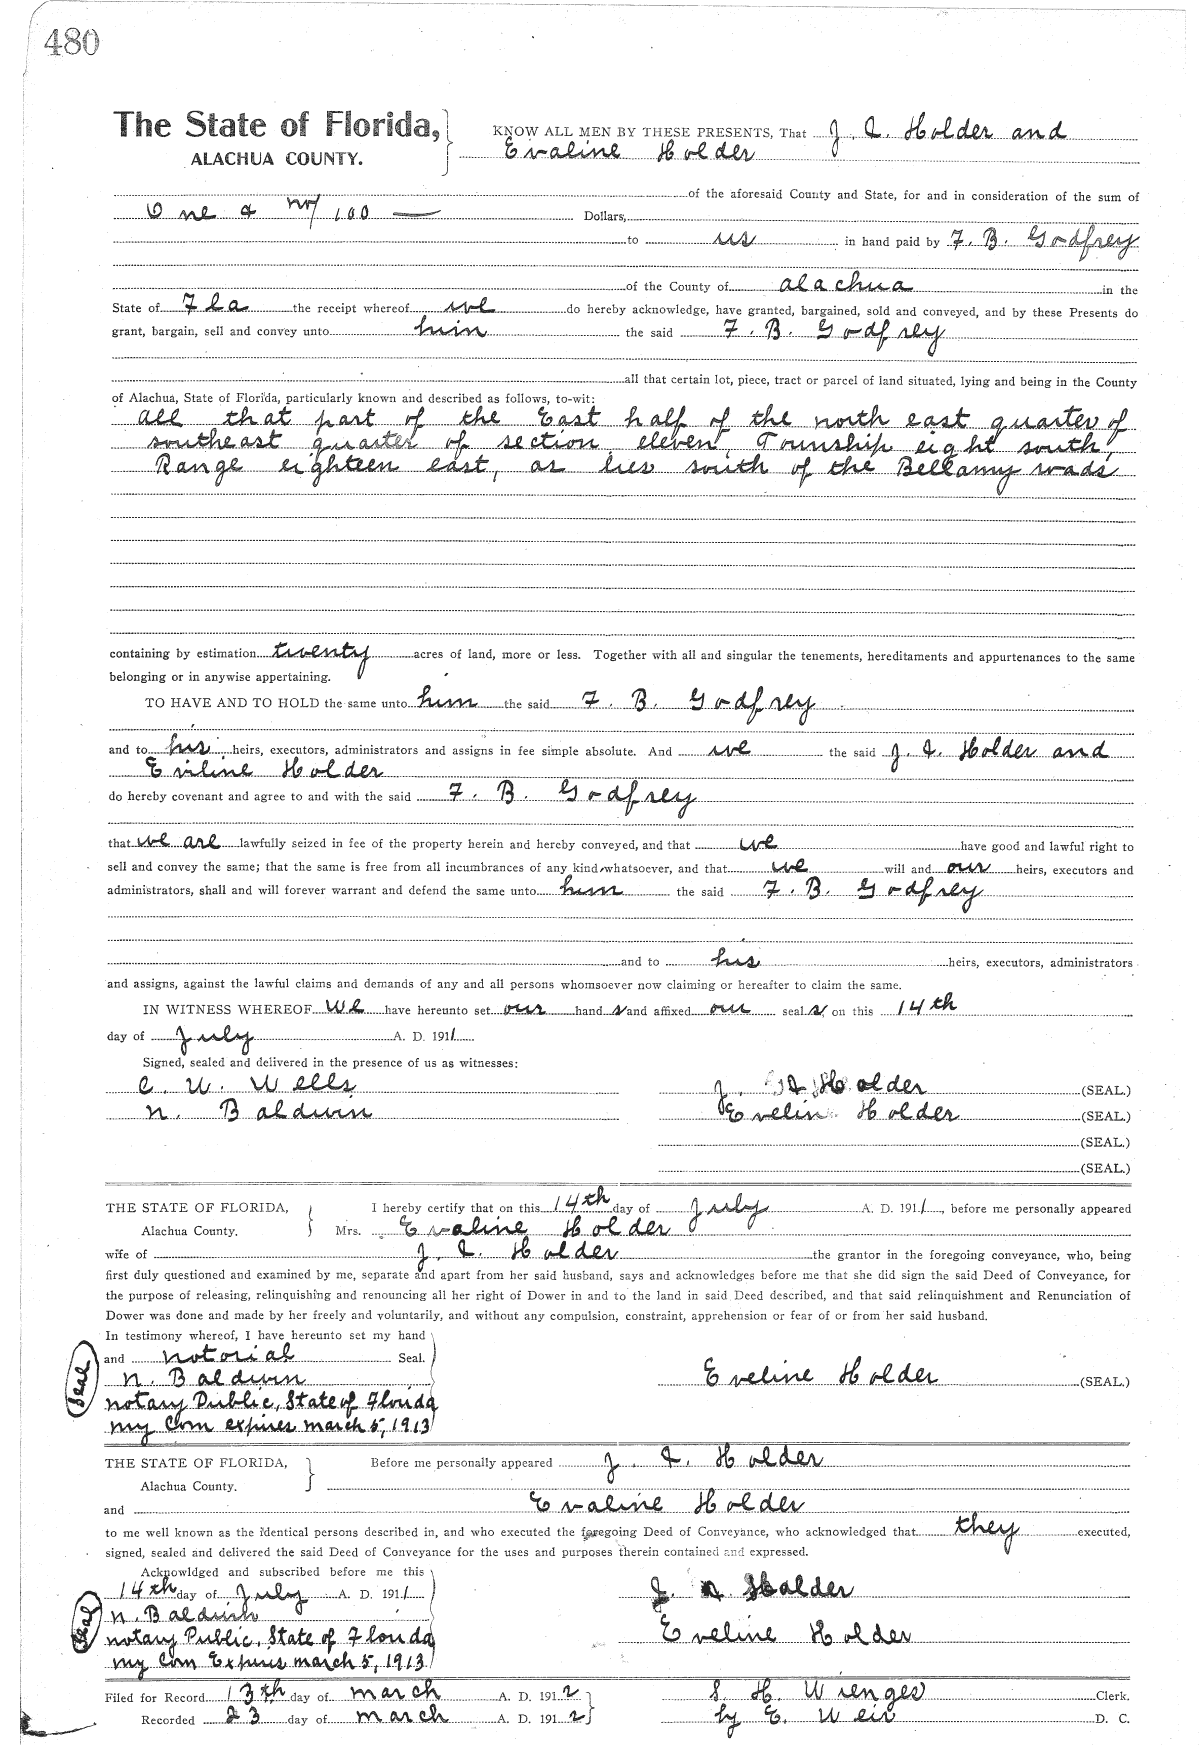 480
The State of Florida, KNOW ALL MEN BY THESE PRESENTS, That J. I. Holder and
ALACHUA COUNTY. Evaline Holder
of the aforesaid County and State, for and in consideration of the sum of
One & no/100 Dollars,
to us in hand paid by F. B. Godfrey
of the County of alachua in the
State of Fla the receipt whereof we do hereby acknowledge, have granted, bargained, sold and conveyed, and by these Presents do
grant, bargain, sell and convey unto him the said F. B. Godfrey
all that certain lot, piece, tract or parcel of land situated, lying and being in the County
of Alachua, State of Florida, particularly known and described as follows, to-wit:
all that part of the East half of the north east quarter of
southeast quarter of section eleven, Township eight south,
Range eighteen east, as lies south of the Bellamy roads
containing by estimation twenty acres of land, more or less. Together with all and singular the tenements, hereditaments and appurtenances to the same
belonging or in anywise appertaining.
TO HAVE AND TO HOLD the same unto him the said F. B. Godfrey
and to his heirs, executors, administrators and assigns in fee simple absolute. And we the said J. I. Holder and
Eviline Holder
do hereby covenant and agree to and with the said F. B. Godfrey
that we are lawfully seized in fee of the property herein and hereby conveyed, and that we have good and lawful right to
sell and convey the same; that the same is free from all incumbrances of any kind whatsoever, and that we will and our heirs, executors and
administrators, shall and will forever warrant and defend the same unto him the said F. B. Godfrey
and to his heirs, executors, administrators
and assigns, against the lawful claims and demands of any and all persons whomsoever now claiming or hereafter to claim the same.
IN WITNESS WHEREOF we have hereunto set our hand s and affixed our seal s on this 14th
day of July A. D. 1911
Signed, sealed and delivered in the presence of us as witnesses:
C. W. Wells J. I. Holder (SEAL.)
N. Baldwin Evelin Holder (SEAL.)
(SEAL.)
(SEAL.)
THE STATE OF FLORIDA, I hereby certify that on this 14th day of July A. D. 1911, before me personally appeared
Alachua County. Mrs. Evaline Holder
wife of J. I. Holder the grantor in the foregoing conveyance, who, being
first duly questioned and examined by me, separate and apart from her said husband, says and acknowledges before me that she did sign the said Deed of Conveyance, for
the purpose of releasing, relinquishing and renouncing all her right of Dower in and to the land in said Deed described, and that said relinquishment and Renunciation of
Dower was done and made by her freely and voluntarily, and without any compulsion, constraint, apprehension or fear of or from her said husband.
In testimony whereof, I have hereunto set my hand
and notorial Seal.
Seal N. Baldwin Eveline Holder (SEAL.)
notary Public, State of Florida
my Com expires march 5, 1913
THE STATE OF FLORIDA, Before me personally appeared J. I. Holder
Alachua County.
and Evaline Holder
to me well known as the identical persons described in, and who executed the foregoing Deed of Conveyance, who acknowledged that they executed,
signed, sealed and delivered the said Deed of Conveyance for the uses and purposes therein contained and expressed.
Acknowldged and subscribed before me this
14th day of July A. D. 1911 J. Holder
Seal N. Baldwin
notary Public, State of Florida Eveline Holder
my Com Expires march 5, 1913
Filed for Record 13th day of march A. D. 1912 S. H. Wienges Clerk.
Recorded 23 day of march A. D. 1912 by E. Weir D. C.